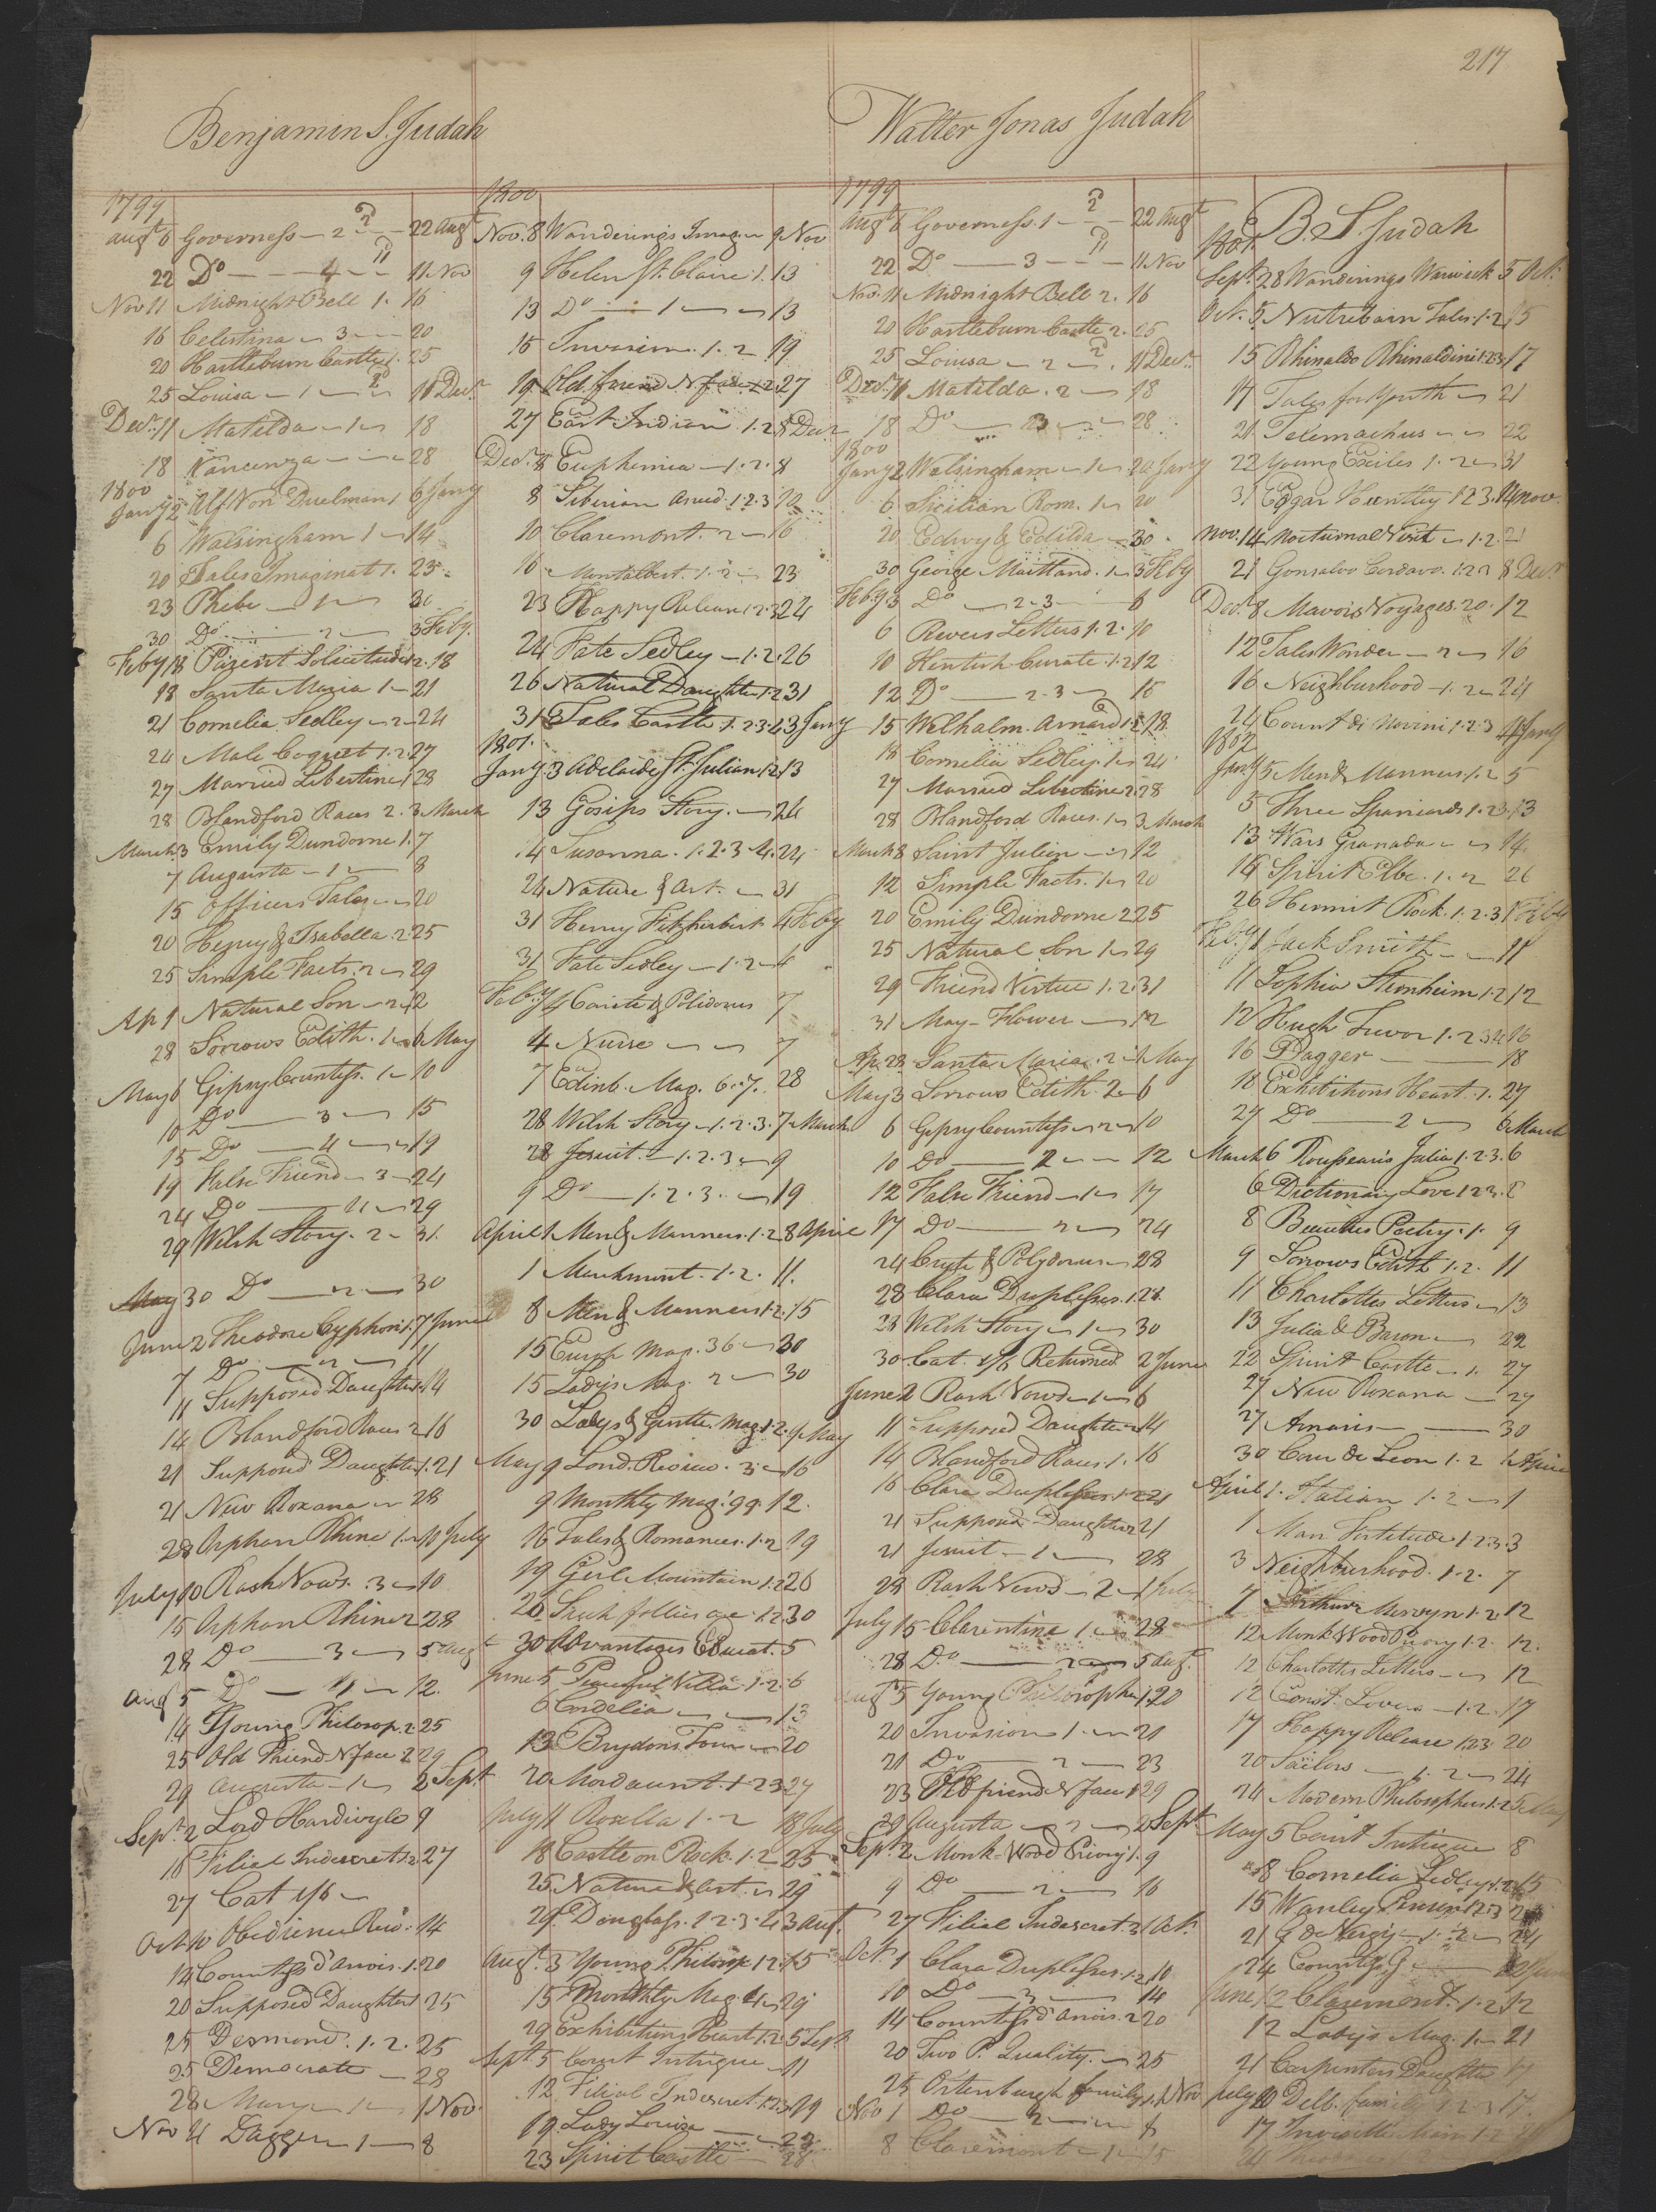 217
Benjamin S. Judah
1799
Augt 6 Governess — 2 — 22 Augt
22 Do — 4 — 11 Nov
Nov 11 Midnight Bell 1. 16
16 Celestina — 3 — 20
20 Hartlebourn Castle 1. 25
25 Louisa — 1 — 11 Decr
Decr 11 Matilda — 1 — 18
18 Vancenza — 28
1800
Jany 2 Alf Von Duelman 1 6 Jany
6 Walsingham 1 — 14
20 Tales Imaginat 1. 23
23 Phebe — 1 — 30
30 Do — 2 — 3 Feby.
Feby 18 Parent Solicitude 1.2. 18
18 Santa Maria 1 — 21
21 Cornelia Sedley — 2 — 24
24 Male Coquet 1.2. 27
27 Married Libertine 1 28
28 Blandford Races 2. 3 March
March 3 Emily Dundorne 1. 7
7 Augusta — 1 — 8
15 Officers Tales — 20
20 Henry & Isabella. 2. 25
25 Simple Facts. 2 — 29
Ap 1 Natural Son — 2 — 2
28 Sorrows Edith. 1 — 6 May
May 6 Gipsy Countess. 1 — 10
10 Do — 3 — 15
15 Do — 4 — 19
19 False Friend — 3 — 24
24 Do — 4 — 29
29 Welsh Story. 2 — 31.
May 30 Do — 2 — 30
June 2 Theodore Cyphon 1. 7 June
7 Do — 2 — 11
11 Supposed Daughter 14
14 Blandford Races 2 16
21 Supposed Daughter 1. 21
21 New Roxana — 28
28 Orphan Rhine 1 — 10 July
July 10 Rash Vows. 3 — 10
15 Orphan Rhine 2 28
28 Do — 3 — 5 Augt
Aug 5 Do — 4 — 12.
14 Young Philosop. 2 25
25 Old Friend N face 2 29
29 Augusta — 1 — 2 Sept
Sept 2 Lord Hardivyle 9
16 Filial Indescret 1.2 27
27 Cat 1/6 —
Oct 10 Obedience Rew. 14
14 Countess d'Anois. 1. 20
20 Supposed Daughter 25
25 Desmond. 1. 2. 25
25 Democrate — 28
28 Mary — 1 — 1 Nov.
Nov 4 Dagger — 1 — 8
1800
Nov. 8 Wanderings Imag — 9 Nov
9 Helen St. Claire. 1. 13
13 Do — 1 — 13
15 Invasion. 1. 2 19
19 Old friend N face 1.2. 27
27 East Indian 1.2 8 Decr
Decr 8 Euphemia — 1. 2. 8
8 Siberian 1.2.3 12
10 Claremont. 2 — 16
16 Montalbert. 1. 2 — 23
23 Happy Release 1.2.3 24
24 Fate Sedley — 1. 2. 26
26 Natural Daughter 1.2 31
31 Tales Castle 1. 2 3 4 3 Jany
1801.
Jany 3 Adelaide St. Julian 1.2 13
13 Gosips Story. — 24
14 Susanna. 1. 2. 3. 4. 24
24 Nature & Art. — 31
31 Henry Fitzherbert 4 Feby
31 Fate Sedley — 1. 2 — 4
Feby 4 Carite & Polidorus 7
4 Nurse — 7
7 Edinb. Mag. 6. 7. 28
28 Welsh Story — 1. 2. 3. 7 March
28 Jesuit. — 1. 2. 3 — 9
9 Do — 1. 2. 3. — 19
April 1 Men & Manners. 1. 2 8 April
1 Marchmont. 1. 2. 11.
8 Men & Manners 1.2. 15
15 Europ Mag. 36 — 30
15 Ladys Mag. 2 — 30
30 Ladys & Gentle. Mag. 1.2. 9 May
May 9 Lond. Review. 3 — 16
9 Monthly Mag. 99. 12.
16 Tales & Romances. 1. 2 19
19 Girl Mountain 1. 2 26
26 Such follies are. 1. 2 30
30 Advantages Educat. 5
June 5 Peaceful Villa 1. 2. 6
6 Cordelia — 13
13 Brydons Tour — 20
20 Mordaunt. 1. 2 3 27
July 11 Rosella 1. 2 18 July
18 Castle on Rock. 1. 2. 25
25 Nature & Art. — 29
29 Douglass. 1. 2. 3. 4 3 Aug.
Augt. 3 Young Philosop 1.2. 15
15 Monthly Mag. 4 — 29
29 Exhibitions Heart 1.2. 5 Sept
Sept. 5 Court Intrigue — 11
12 Filial Indescret 1.2.3. 19
19 Lady Louisa — 23
23 Spirit Castle — 28
Walter Jonas Judah
1799
Augt 6 Governess. 1 — 22 Augt
22 Do — 3 — 11 Nov
Nov. 11 Midnight Bell 2. 16
20 Hartlebourn Castle 2. 25
25 Louisa — 2 — 11 Decr
Decr 11 Matilda. 2 — 18
18 Do — 3 — 28
1800
Jany 2 Walsingham — 1 — 20 Jany
6 Sicilian Rom. 1 — 20
20 Edwy & Edilda — 30
30 George Maitland. 1 — 3 Feby
Feby. 3 Do — 2. 3 — 6
6 Rivers Letters 1. 2. 10
10 Kentish Curate. 1. 2 12
12 Do — 2. 3 — 15
15 Welhalm. Arnard 1.2 18
18 Cornelia Sedley. 1 — 24
27 Married Libertine 2. 28
28 Blandford Races. 1 — 3 March
March 8 Saint Julien — 12
12 Simple Facts. 1 — 20
20 Emily Dundorne 2 25
25 Natural Son 1 — 29
29 Friend Virtue 1. 2. 31
31 May-Flower — 12
Ap. 28 Santa Maria. 2 — May
May 3 Sorrows Edith. 2 — 6
6 Gipsy Countess — 2 — 10
10 Do — 2 — 12
12 False Friend — 1 — 17
17 Do — 2 — 24
24 Cryte & Polydorus — 28
28 Clara Duplessis. 1. 28.
28 Welsh Story — 1 — 30
30 Cat. 1/6 Returned 2 June
June 2 Rash Vows — 1 — 6
11 Supposed Daughter 14
14 Blandford Races. 1. 16
16 Clara Duplessis. 1. 2 21
21 Supposed Daughter 2 21
21 Jesuit — 1 — 28
28 Rash Vows — 2 — 1 July
July 15 Clarentine 1 — 28
28 Do — 2 — 5 Augt.
Augt 5 Young Philosopher 1. 20
20 Invasion 1. — 21
21 Do — 2 — 23
23 Old friend N face 1 29
29 Augusta — 2 — 2 Sept
Sept. 2 Monk-Wood Priory 1. 9
9 Do — 2 — 16
27 Filial Indescret. 3 1 Oct.
Oct. 1 Clara Duplessis. 1. 2 10
10 Do — 3 — 14
14 Countess d'Anois. 2 20
20 Two P. Quality. — 25
25 Ortenburgh family 1. 1 Nov
Nov 1 Do — 2 — 8
8 Claremont — 1 — 15
B. S. Judah
1801.
Sept. 28 Wanderings Warwick 5 Oct.
Oct. 5 Nutrebain Tales. 1. 2 15
15 Rhinaldo Rhinaldini 1.2.3. 17
17 Tales for Youth — 21
21 Telemachus — 22
22 Young Exiles 1. 2 — 31
31 Edgar Huntley 1 2 3. 14 Nov.
Nov. 14 Nocturnal Visit — 1. 2. 21
21 Gonsalvo Cordavo. 1. 2 3 8 Decr
Decr. 8 Mavois Voyages. 20. 12
12 Tales Wonder — 2 — 16
16 Neighburhood — 1. 2 — 24
24 Count di Novini 1. 2. 3 4 Jany
1802
Jany 5 Men & Manners. 1. 2 5
5 Three Spaniards 1. 2. 3. 13
13 Wars Granada — 14.
14 Spirit Elbe. 1. 2 26
26 Hermit Rock. 1. 2. 3 1 Feby
Feby 1 Jack Smith — 11
11 Sophia Sternheim 1. 2 12
12 Hugh Trevor 1. 2 3 4 16
16 Dagger — 18
18 Exhibitions Heart. 1. 27
27 Do — 2 — 6 March
March 6 Rousseau's Julia 1. 2. 3. 6
6 Dictionary Love 1 2 3. 8
8 Beauties Poetry. 1. 9
9 Sorrows Edith 1. 2. 11
11 Charlottes Letters — 13
13 Julia & Baron — 22
22 Spirit Castle — 1. 27
27 New Roxana — 27
27 Amaris — 30
30 Cour de Leon 1. 2 1 April
April 1. Italian 1. 2 — 1
1 Man Fortitude 1. 2. 3. 3
3 Neighburhood. 1. 2. 7
7 Arthur Mervyn 1. 2. 12
12 Monk Wood Priory 1. 2. 12.
12 Charlottes Letters — 12
12 Const. Lovers — 1. 2. 17
17 Happy Release 1 2 3 20
20 Sailors — 1. 2 — 24
24 Modern Philosophers 1. 2 5 May
May 5 Court Intrigue 8
8 Cornelia Sedley 1. 2 15
15 Wanley Penson 1 2 3
21 G de Vergy — 1. 2 — 24
24 Countess G —
June 12 Claremont. 1. 2 12
12 Lady's Mag. 1 — 21
21 Carpenters Daughter 17
July 10 Delb. family 1. 2. 3 17.
17 Invisible Man 1. 2
24